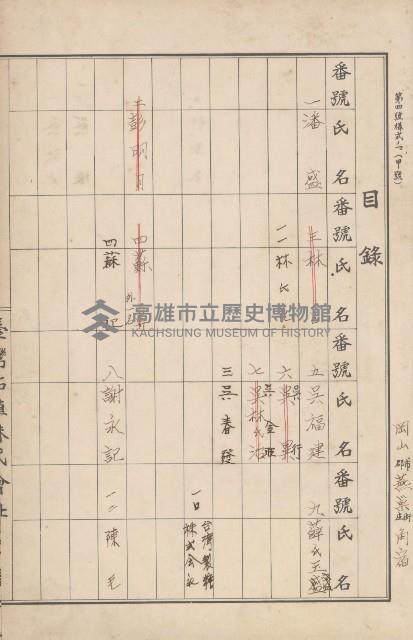 第四號樣式ノ一(甲號)
目錄
岡山郡燕巢庄角宿
番號 氏名 番號 氏名 番號 氏名 番號 氏名
一 潘盛
三 林
五 吳福建
九 薛氏玉盛
二 林氏
六 吳
吳金
七 吳林氏
三 吳春發
一日 台灣製糖株式会社
三 彭明月
四 蘇
四 蘇
八 謝永記
一二 陳毛
高雄市立歷史博物館
KAOHSIUNG MUSEUM OF HISTORY